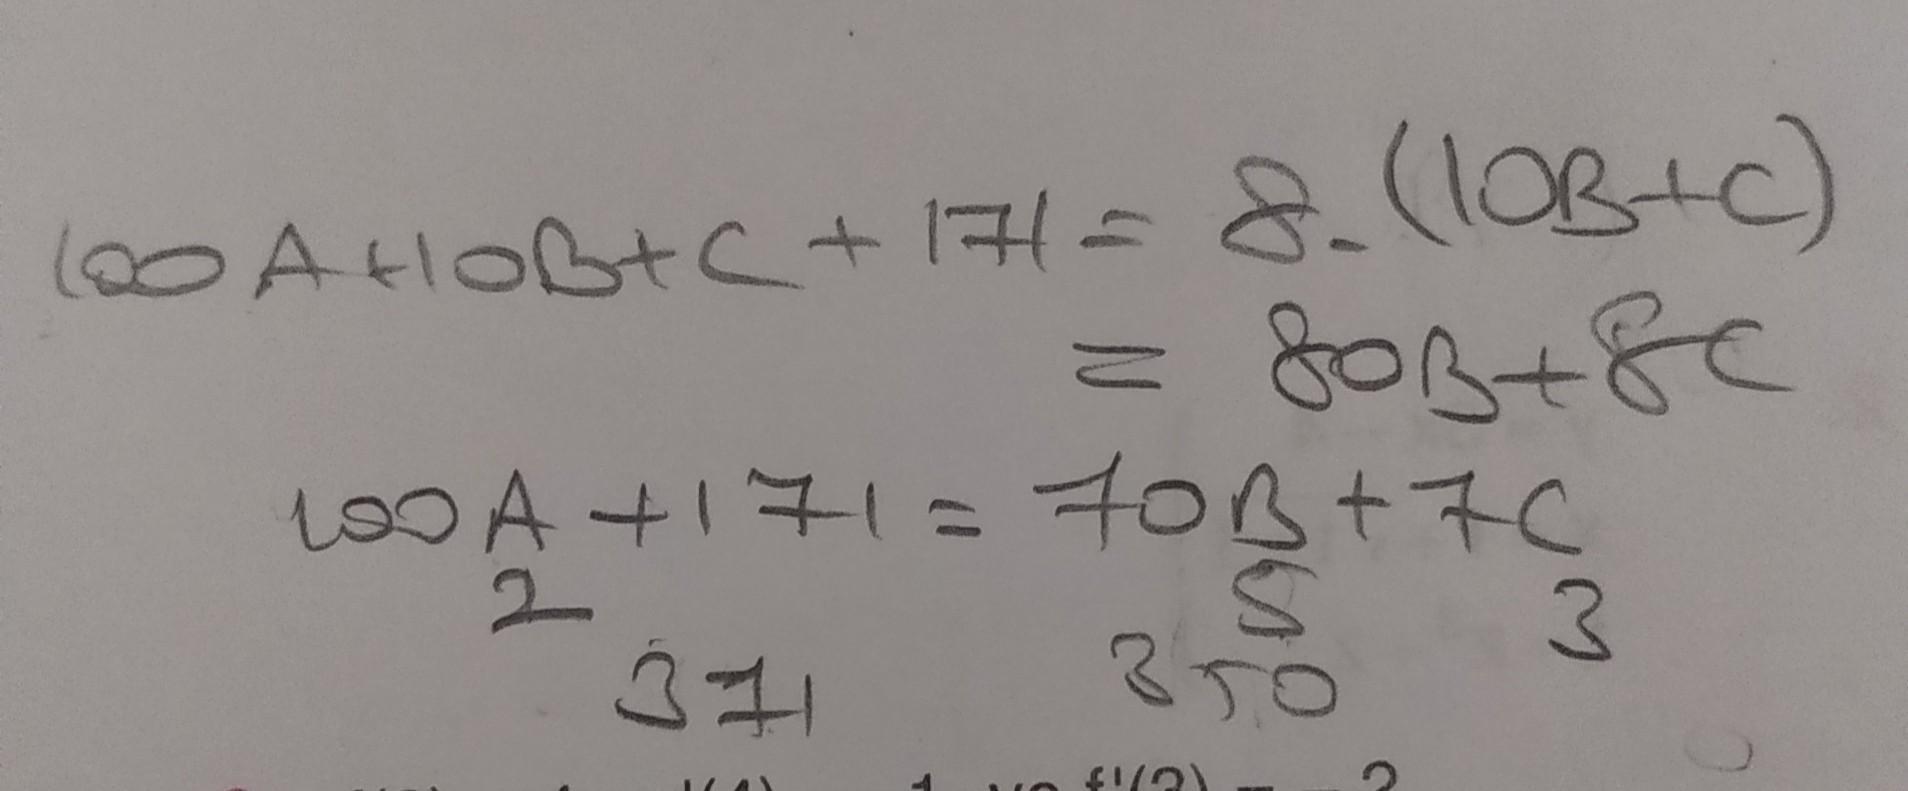 100A+10B+C+171=8.(10B+C)
=80B+8C
100A+171=70B+7C
2 5 3
371 350